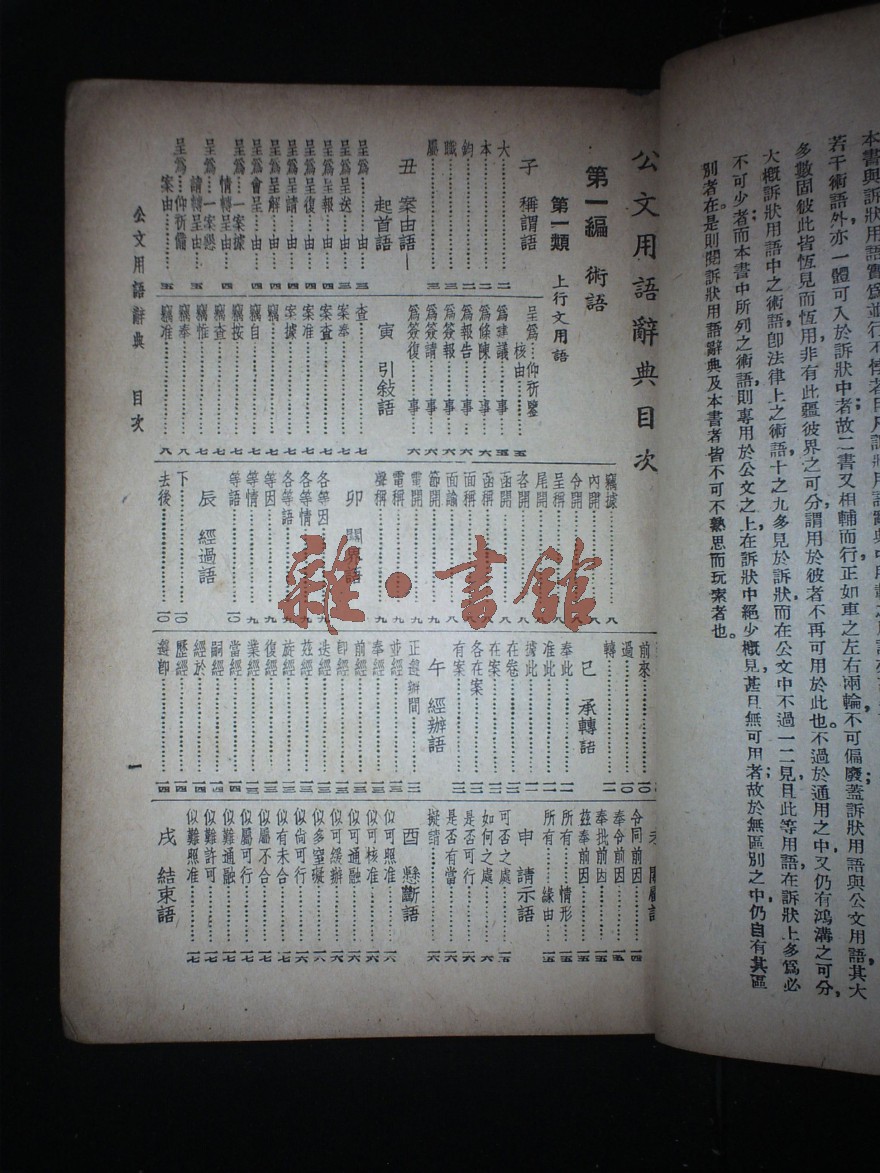 若干術語外亦一體可入於訴狀中者故二書又相輔而行正如車之左右兩輪不可偏廢蓋訴狀用語與公文用語其大
多數固彼此皆恆見而恆用非有此疆彼界之可分謂用於彼者不再可用於此也。不過於通用之中又仍有鴻溝之可分,
大概訴狀用語中之術語卽法律上之術語十之九多見於訴狀而在公文中不過一二見且此等用語在訴狀上多爲必
不可少者而本書中所列之術語則專用於公文之上在訴狀中絕少概見甚且無可用者故於無區別之中仍自有其區
別者在。是則閱訴狀用語辭典及本書者皆不可不熟思而玩索者也。
公文用語辭典目次
第一編 術語
第一類 上行文用語
子 稱謂語
大……二
本……二
鈞……二
職……三
屬……三
丑 案由語—
起首語
呈爲……由……三
呈爲呈送……由……三
呈爲呈報……由……四
呈爲呈復……由……四
呈爲呈請……由……四
呈爲呈解……由……四
呈爲會呈……由……四
呈爲……一案據
情轉呈由……四
呈爲……一案懇
請轉呈由……五
呈爲……仰祈備
案由……五
呈爲……仰祈鑒
核由……五
爲建議……事……五
爲條陳……事……六
爲報告……事……六
爲簽報……事……六
爲簽請……事……六
爲簽復……事……六
寅 引敍語
查……七
案奉……七
案查……七
案准……七
案據……七
竊……七
竊自……七
竊按……七
竊查……七
竊惟……七
竊奉……八
竊准……八
竊據……八
內開……八
令開……八
呈稱……八
尾開……八
咨開……八
函開……八
函稱……八
面稱……八
面諭……八
節開……九
電開……九
電稱……九
聲稱……九
卯 關界語
各等因……九
各等情……九
各等語……九
等因……九
等情……九
等語……一〇
辰 經過語
下……一〇
去後……一〇
前來……一〇
過……一〇
轉……一一
巳 承轉語
奉此……一一
准此……一一
據此……一一
在卷……一一
在案……一一
各在案……一二
有案……一二
午 經辦語
正遵辦間……一二
並經……一三
奉經……一三
前經……一三
卽經……一三
迭經……一三
茲經……一三
旋經……一三
復經……一三
業經……一三
當經……一四
嗣經……一四
經於……一四
歷經……一四
遵卽……一四
令同前因……一四
奉令前因……一五
奉批前因……一五
茲奉前因……一五
所有……情形……一五
所有……緣由……一五
申 請示語
可否之處……一五
如何之處……一六
是否可行……一六
是否有當……一六
擬請……一六
酉 懸斷語
似可照准……一六
似可核准……一六
似可通融……一六
似可緩辦……一六
似多窒礙……一六
似尙可行……一七
似有未合……一七
似屬不合……一七
似屬可行……一七
似難通融……一七
似難許可……一七
似難照准……一七
戌 結束語
公文用語辭典 目次
一
雜·書館